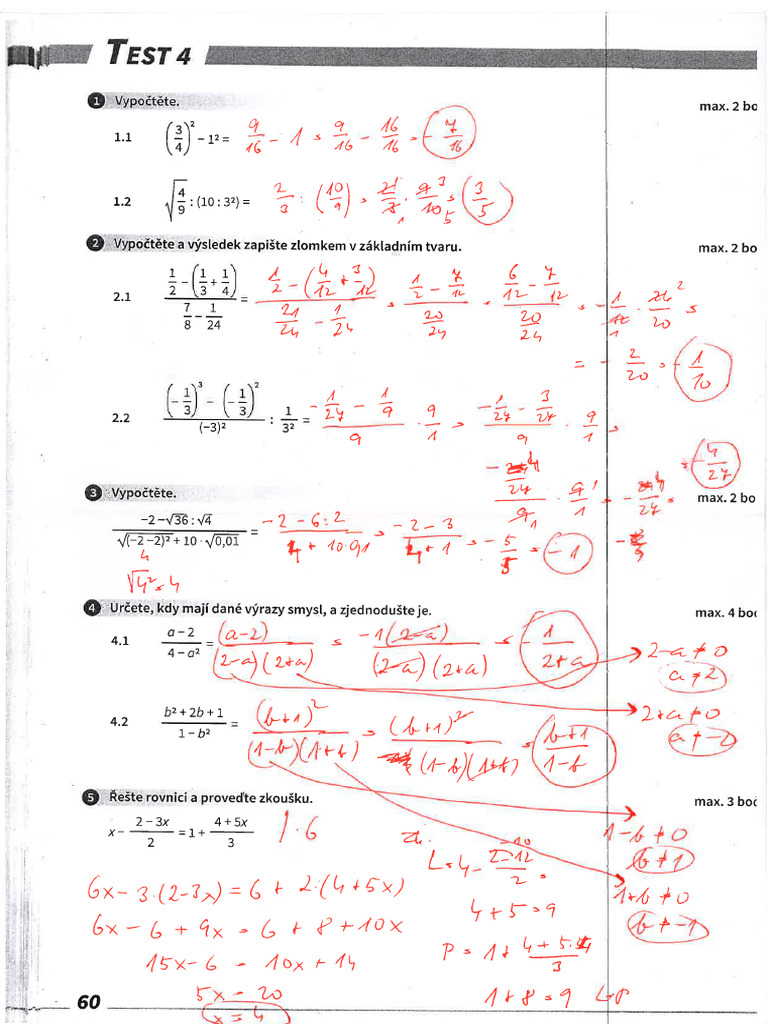 TEST 4
1 Vypočtěte. max. 2 bo
1.1 (3/4)² – 1² = 9/16 – 1 = 9/16 – 16/16 = – 7/16
1.2 √(4/9) : (10 : 3²) = 2/3 : (10/9) = 2/3 · 9/10 = 3/5
2 Vypočtěte a výsledek zapište zlomkem v základním tvaru. max. 2 bo
2.1 (1/2 – (1/3 + 1/4)) / (7/8 – 1/24) = (1/2 – (4/12 + 3/12)) / (21/24 – 1/24) = (1/2 – 7/12) / (20/24) = (6/12 – 7/12) / (20/24) = – 1/12 · 24/20 =
= – 2/20 = – 1/10
2.2 ((–1/3)³ – (–1/3)²) / (–3)² : 1/3² = (–1/27 – 1/9) / 9 · 9/1 = (–1/27 – 3/27) / 9 · 9/1 =
= – 4/27
3 Vypočtěte. max. 2 bo
(–2 – √36 : √4) / (√(–2 –2)² + 10 · √0,01) = (–2 – 6:2) / (4 + 10·0,1) = (–2 – 3) / (4 + 1) = – 5/5 = –1
√4² = 4
4 Určete, kdy mají dané výrazy smysl, a zjednodušte je. max. 4 bo
4.1 (a – 2) / (4 – a²) = (a–2) / (2–a)(2+a) = –1(2–a) / (2–a)(2+a) = – 1 / (2+a)
2–a ≠ 0
a ≠ 2
2+a ≠ 0
a ≠ –2
4.2 (b² + 2b + 1) / (1 – b²) = (b+1)² / (1–b)(1+b) = (b+1)² / (1–b)(1+b) = (b+1) / (1–b)
5 Řešte rovnici a proveďte zkoušku. max. 3 boc
x – (2 – 3x)/2 = 1 + (4 + 5x)/3 / · 6
1–b ≠ 0
b ≠ 1
1+b ≠ 0
b ≠ –1
6x – 3·(2–3x) = 6 + 2·(4+5x)
6x – 6 + 9x = 6 + 8 + 10x
15x – 6 = 10x + 14
5x = 20
x = 4
Zk.
L = 4 – (2–12)/2 =
4 + 5 = 9
P = 1 + (4 + 5·4)/3
1 + 8 = 9 L=P
60